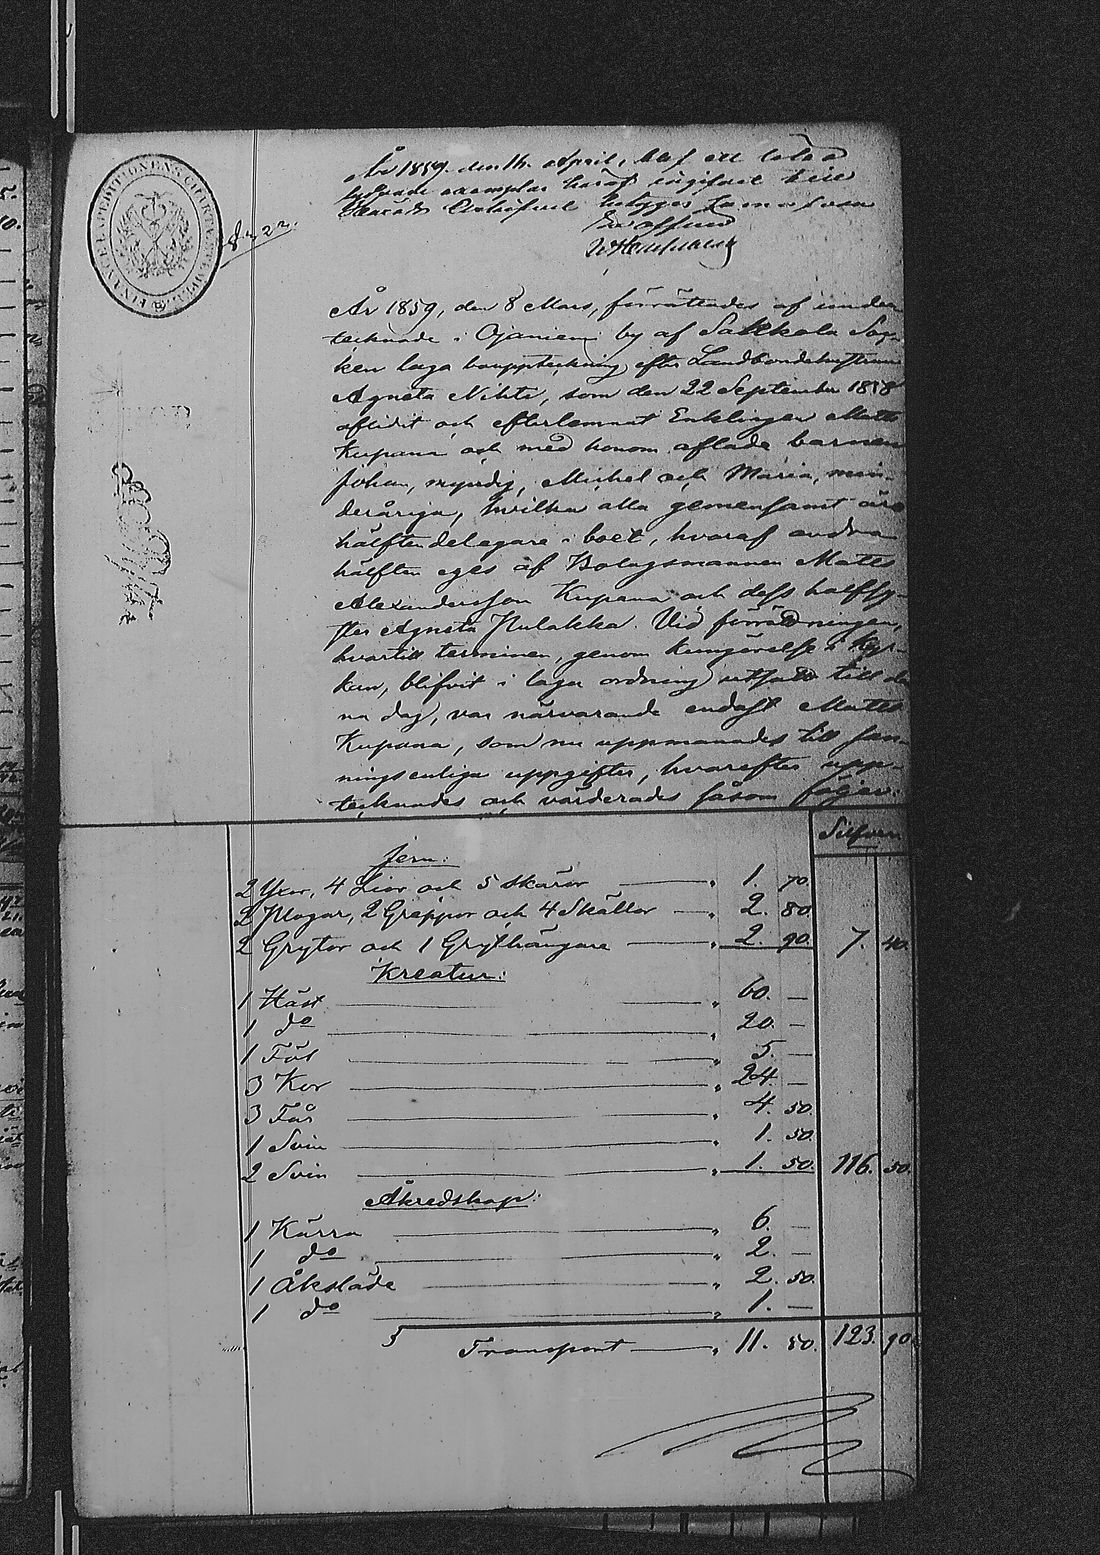 År 1859. den 16. April, blef ett lika
lydande exemplar häraf ingifvet till
Härads Archivet betygas
Ex officio
№ 22.
År 1859, den 8 Mars, förrättades af under
tecknade i Ojaniemi by af Sakkola Soc-
ken laga bouppteckning efter Landbondehustrun
Agneta Nihti, som den 22 September 1858
aflidit och efterlemnat Enklingen Matts
Kupana och med honom aflade barnen
Johan, myndig, Michel och Maria, min-
deråriga, hvilka alla gemensamt äro
hälften delegare i boet, hvaraf andra
hälften eges af Bolagsmannen Matts
Alexandersson Kupana och dess halfsy-
ster Agneta Hulakka. Vid förrättningen,
hvartill terminen, genom kungörelse i Kyr-
kan, blifvit i laga ordning utsatt till den
na dag, var närvarande endast Matts
Kupana, som nu uppmanades till san-
ningsenliga uppgifter, hvarefter upp-
tecknades och värderades såsom följer:
Silfver
Jern:
2 Yxor, 4 Lior och 5 skäror — „ 1. 70.
2 Plogar, 2 Greppor och 4 Skällor — „ 2. 80.
2 Grytor och 1 Grythängare — „ 2. 90. 7. 40.
Kreatur:
1 Häst — „ 60. —
1 do — „ 20. —
1 Föl — „ 5. —
3 Kor — „ 24. —
3 Får — „ 4. 50.
1 Svin — „ 1. 50.
2 Svin — „ 1. 50. 116. 50.
Åkredskap:
1 Kärra — „ 6. —
1 do — „ 2. —
1 Åksläde — „ 2. 50.
1 do — „ 1. —
Transport — „ 11. 50. 123. 90.